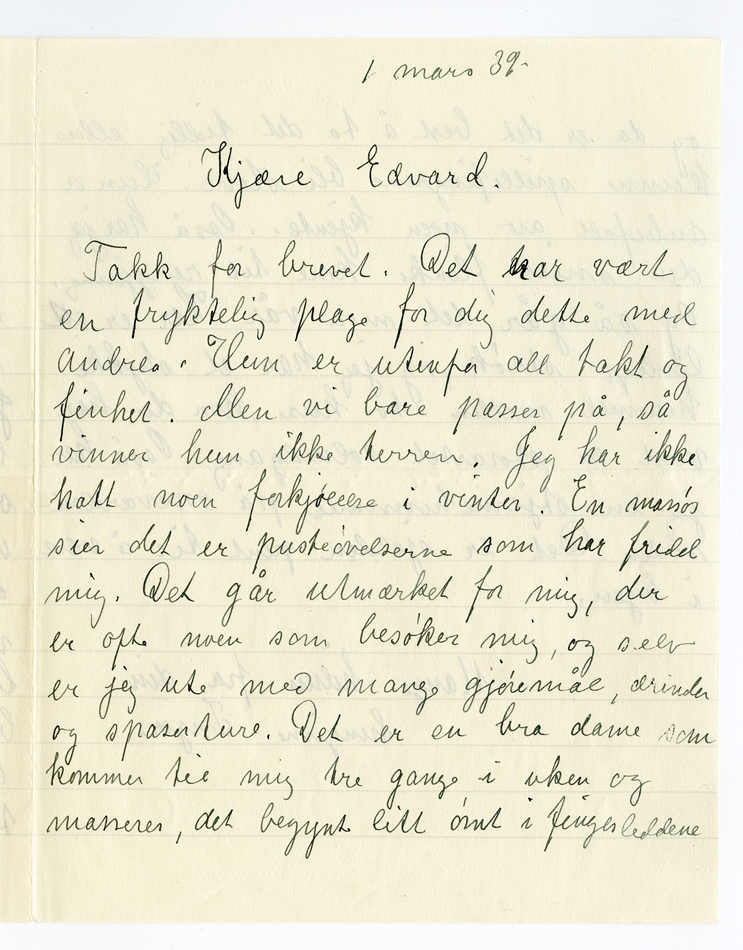 1 mars 39.
Kjære Edvard.
Takk for brevet. Det har vært
en fryktelig plage for dig dette med
Andrea. Hun er utenfor all takt og
finhet. Men vi bare passer på, så
vinner hun ikke terren. Jeg har ikke
hatt noen forkjølelse i vinter. En massös
sier det er pusteövelserne som har fridd
mig. Det går utmærket for mig, der
er ofte noen som besöker mig, og selv
er jeg ute med mange gjöremål, ærinder
og spaserture. Det er en bra dame som
kommer til mig tre gange i uken og
masserer, det begynte litt ömt i fingerleddene